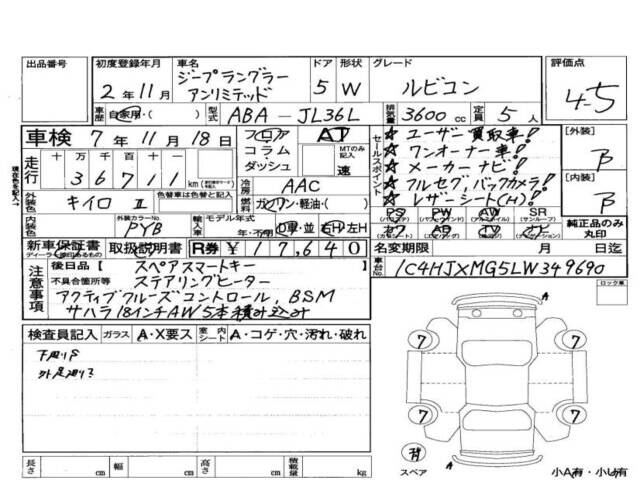 出品番号 初度登録年月 車名 ドア 形状 グレード 評価点
2年11月 ジープラングラー アンリミテッド 5 W ルビコン 4.5
車歴 自家用・( ) 型式 ABA-JL36L 排気量 3600cc 定員 5人
車検 7年11月18日 フロア AT セールスポイント ☆ユーザー買取車! [外装] B
走行 十万 万 千 百 十 一 コラム MTのみ記入 ☆ワンオーナー車!
36711 km ダッシュ 速 ☆メーカーナビ!
外装色 キイロ II 色替車は色替えに○ 冷房 AAC ☆フルセグ,バックカメラ! [内装] B
燃料 ガソリン・軽油・( ) ☆レザーシート(H)!
内装色 外装カラーNo. PYB 輸入車 モデル年式 年・不明 D車・並 右H・左H
PS PW AW SR
(パワステ) (パワーウィンド) (アルミホイル) (サンルーフ)
カワ TV ナビ
純正品のみ丸印
新車保証書 取扱説明書 R券 ¥17,640 名変期限 月 日迄
ディーラー捺印あるもの
注意事項 後日品 スペアスマートキー 車台No. 1C4HJXMG5LW349690
不具合箇所等 ステアリングヒーター
アクティブクルーズコントロール,BSM
サハラ18インチAW5本積み込み
ロック車
検査員記入 ガラス A・X要ス 室内シート A・コゲ・穴・汚れ・破れ
下廻りS
A
7 7
7 7
スペア
A
長さ cm 幅 cm 高さ cm 積載量 kg
小A有・小U有
現在色を記入